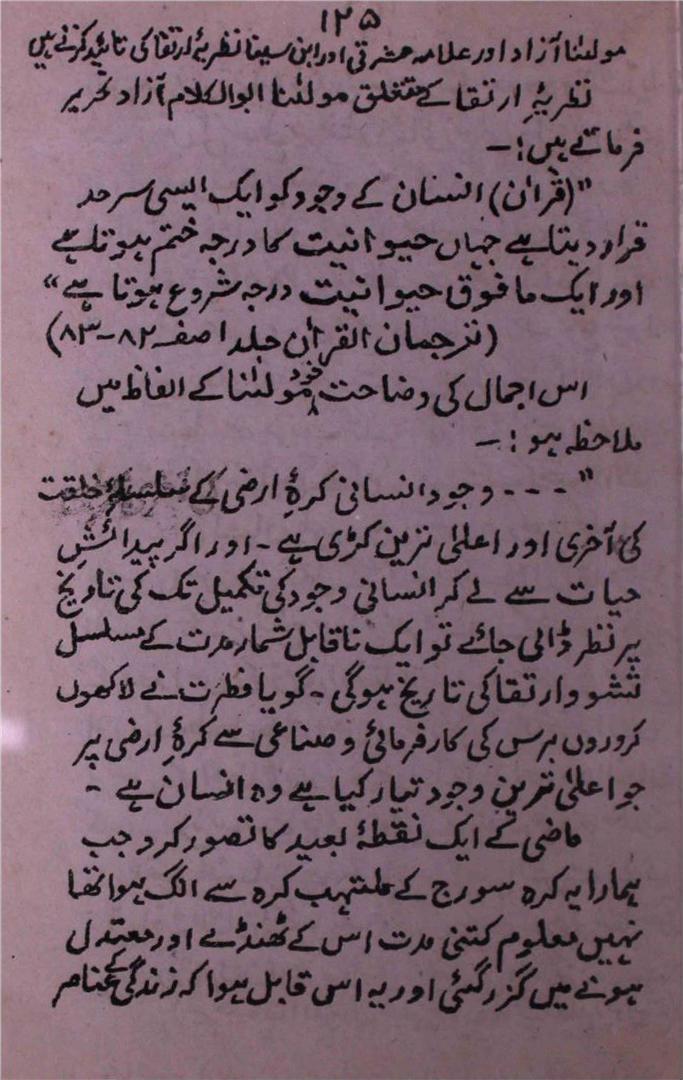 ۱۲۵
مولٰنا آزاد اور علامہ مشرقی اور ابن سینا نظریۂ ارتقا کی تائید کرتے ہیں
نظریۂ ارتقا کے متعلق مولٰنا ابوالکلام آزاد تحریر
فرماتے ہیں :–
"(قرآن) انسان کے وجود کو ایک ایسی سرحد
قرار دیتا ہے جہاں حیوانیت کا درجہ ختم ہوتا ہے
اور ایک مافوق حیوانیت درجہ شروع ہوتا ہے"
(ترجمان القرآن جلد ا صفہ ۸۲-۸۳)
اس اجمال کی وضاحت خود مولٰنا کے الفاظ میں
ملاحظہ ہو :–
"--- وجود انسانی کرۂ ارضی کے سلسلۂ خلقت
کی آخری اور اعلٰی ترین کڑی ہے - اور اگر پیدائشِ
حیات سے لے کر انسانی وجود کی تکمیل تک کی تاریخ
پر نظر ڈالی جائے تو ایک ناقابل شمار مدت کے مسلسل
نشو و ارتقا کی تاریخ ہوگی - گویا فطرت نے لاکھوں
کروروں برس کی کار فرمائی و صناعی سے کرۂ ارضی پر
جو اعلٰی ترین وجود تیار کیا ہے وہ انسان ہے -
ماضی کے ایک نقطۂ بعید کا تصور کرو جب
ہمارا یہ کرہ سورج کے ملتہب کرہ سے الگ ہوا تھا
نہیں معلوم کتنی مدت اس کے ٹھنڈے اور معتدل
ہونے میں گزر گئی اور یہ اس قابل ہوا کہ زندگی کے عناصر